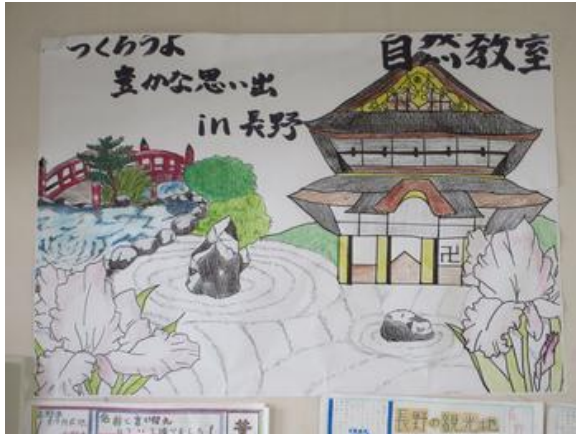 つくろうよ
豊かな思い出
in 長野
自然教室
卍
長野の観光地